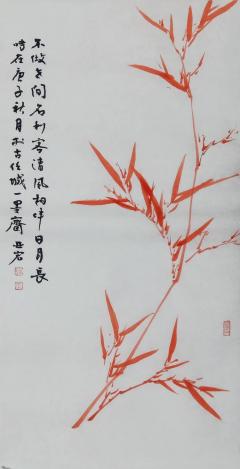 不做世间名利客清风相伴日月长
时在庚子秋月於古任城一墨斋